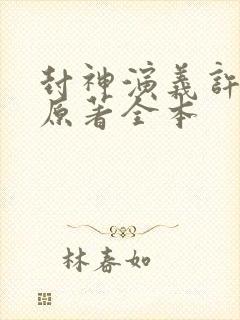 封神演義許
原著全本
林春如